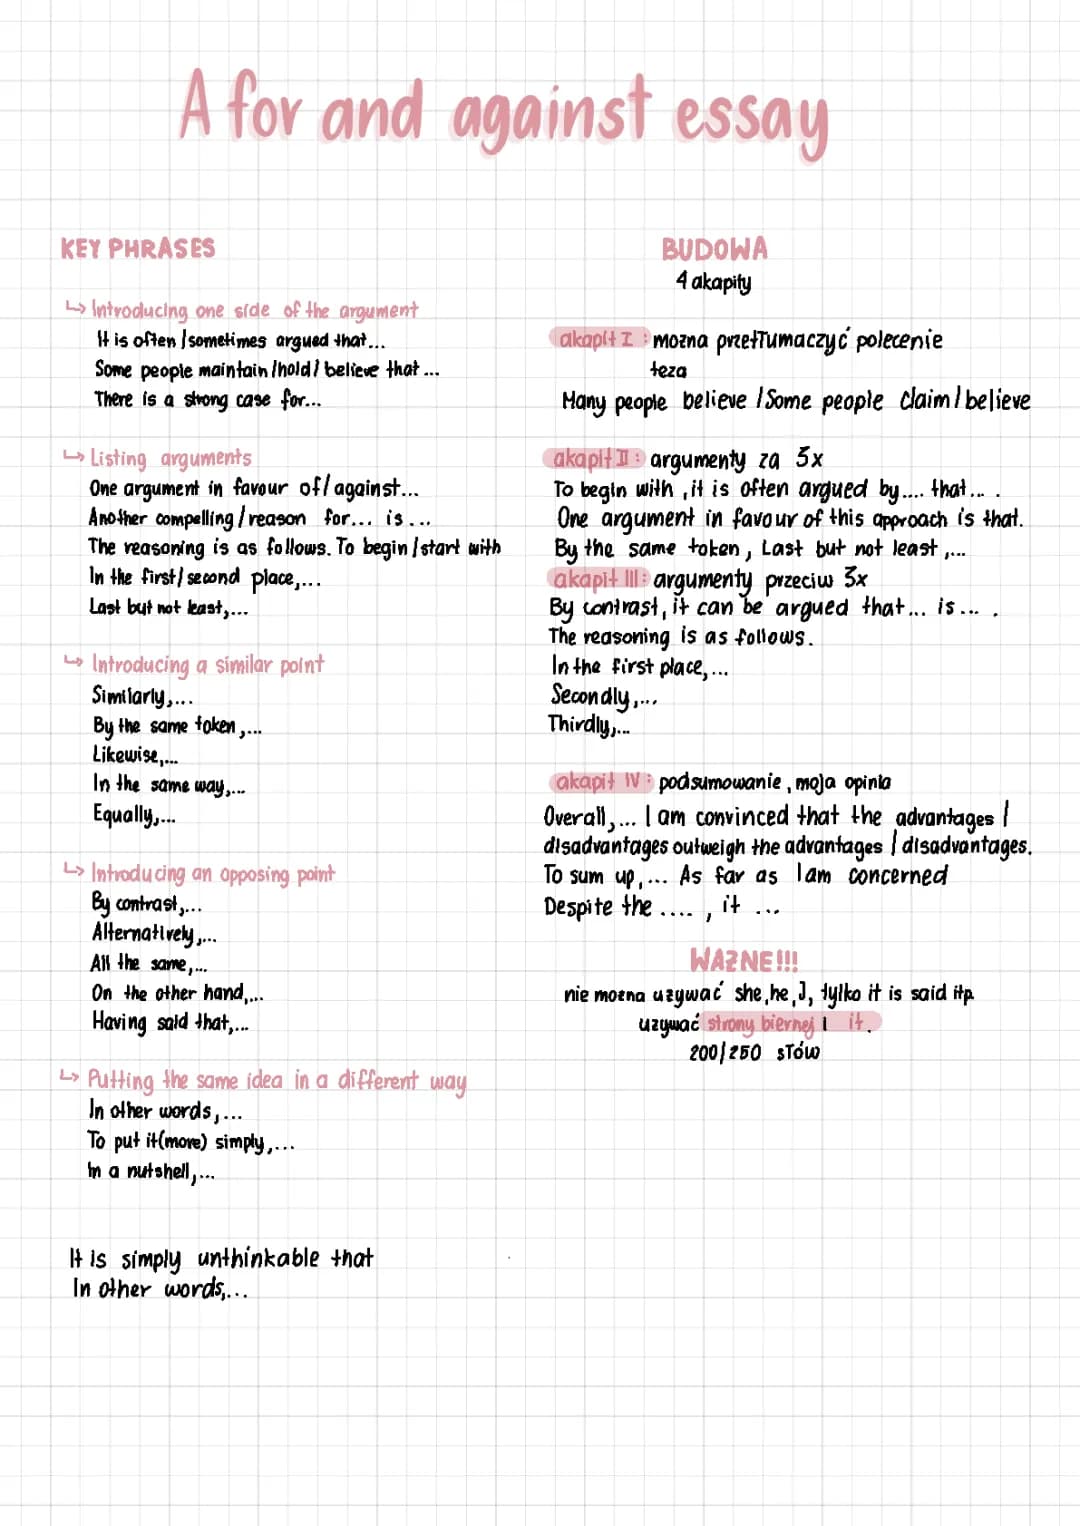 A for and against essay
KEY PHRASES
↳ Introducing one side of the argument
It is often / sometimes argued that...
Some people maintain / hold / believe that...
There is a strong case for...
↳ Listing arguments
One argument in favour of / against...
Another compelling / reason for... is...
The reasoning is as follows. To begin / start with
In the first / second place,...
Last but not least,...
↳ Introducing a similar point
Similarly,...
By the same token,...
Likewise,...
In the same way,...
Equally,...
↳ Introducing an opposing point
By contrast,...
Alternatively,...
All the same,...
On the other hand,...
Having said that,...
↳ Putting the same idea in a different way
In other words,...
To put it (more) simply,...
In a nutshell,...
It is simply unthinkable that
In other words,...
BUDOWA
4 akapity
akapit I : mozna przetłumaczyć polecenie
teza
Many people believe / Some people claim / believe
akapit II : argumenty za 3x
To begin with, it is often argued by.... that... .
One argument in favour of this approach is that.
By the same token, Last but not least,...
akapit III : argumenty przeciw 3x
By contrast, it can be argued that... is... .
The reasoning is as follows.
In the first place,...
Secondly,...
Thirdly,...
akapit IV : podsumowanie, moja opinia
Overall,... I am convinced that the advantages /
disadvantages outweigh the advantages / disadvantages.
To sum up,... As far as I am concerned
Despite the .... , it ...
WAŻNE!!!
nie mozna uzywać she, he, I, tylko it is said itp.
uzywać strony biernej i it.
200/250 słów